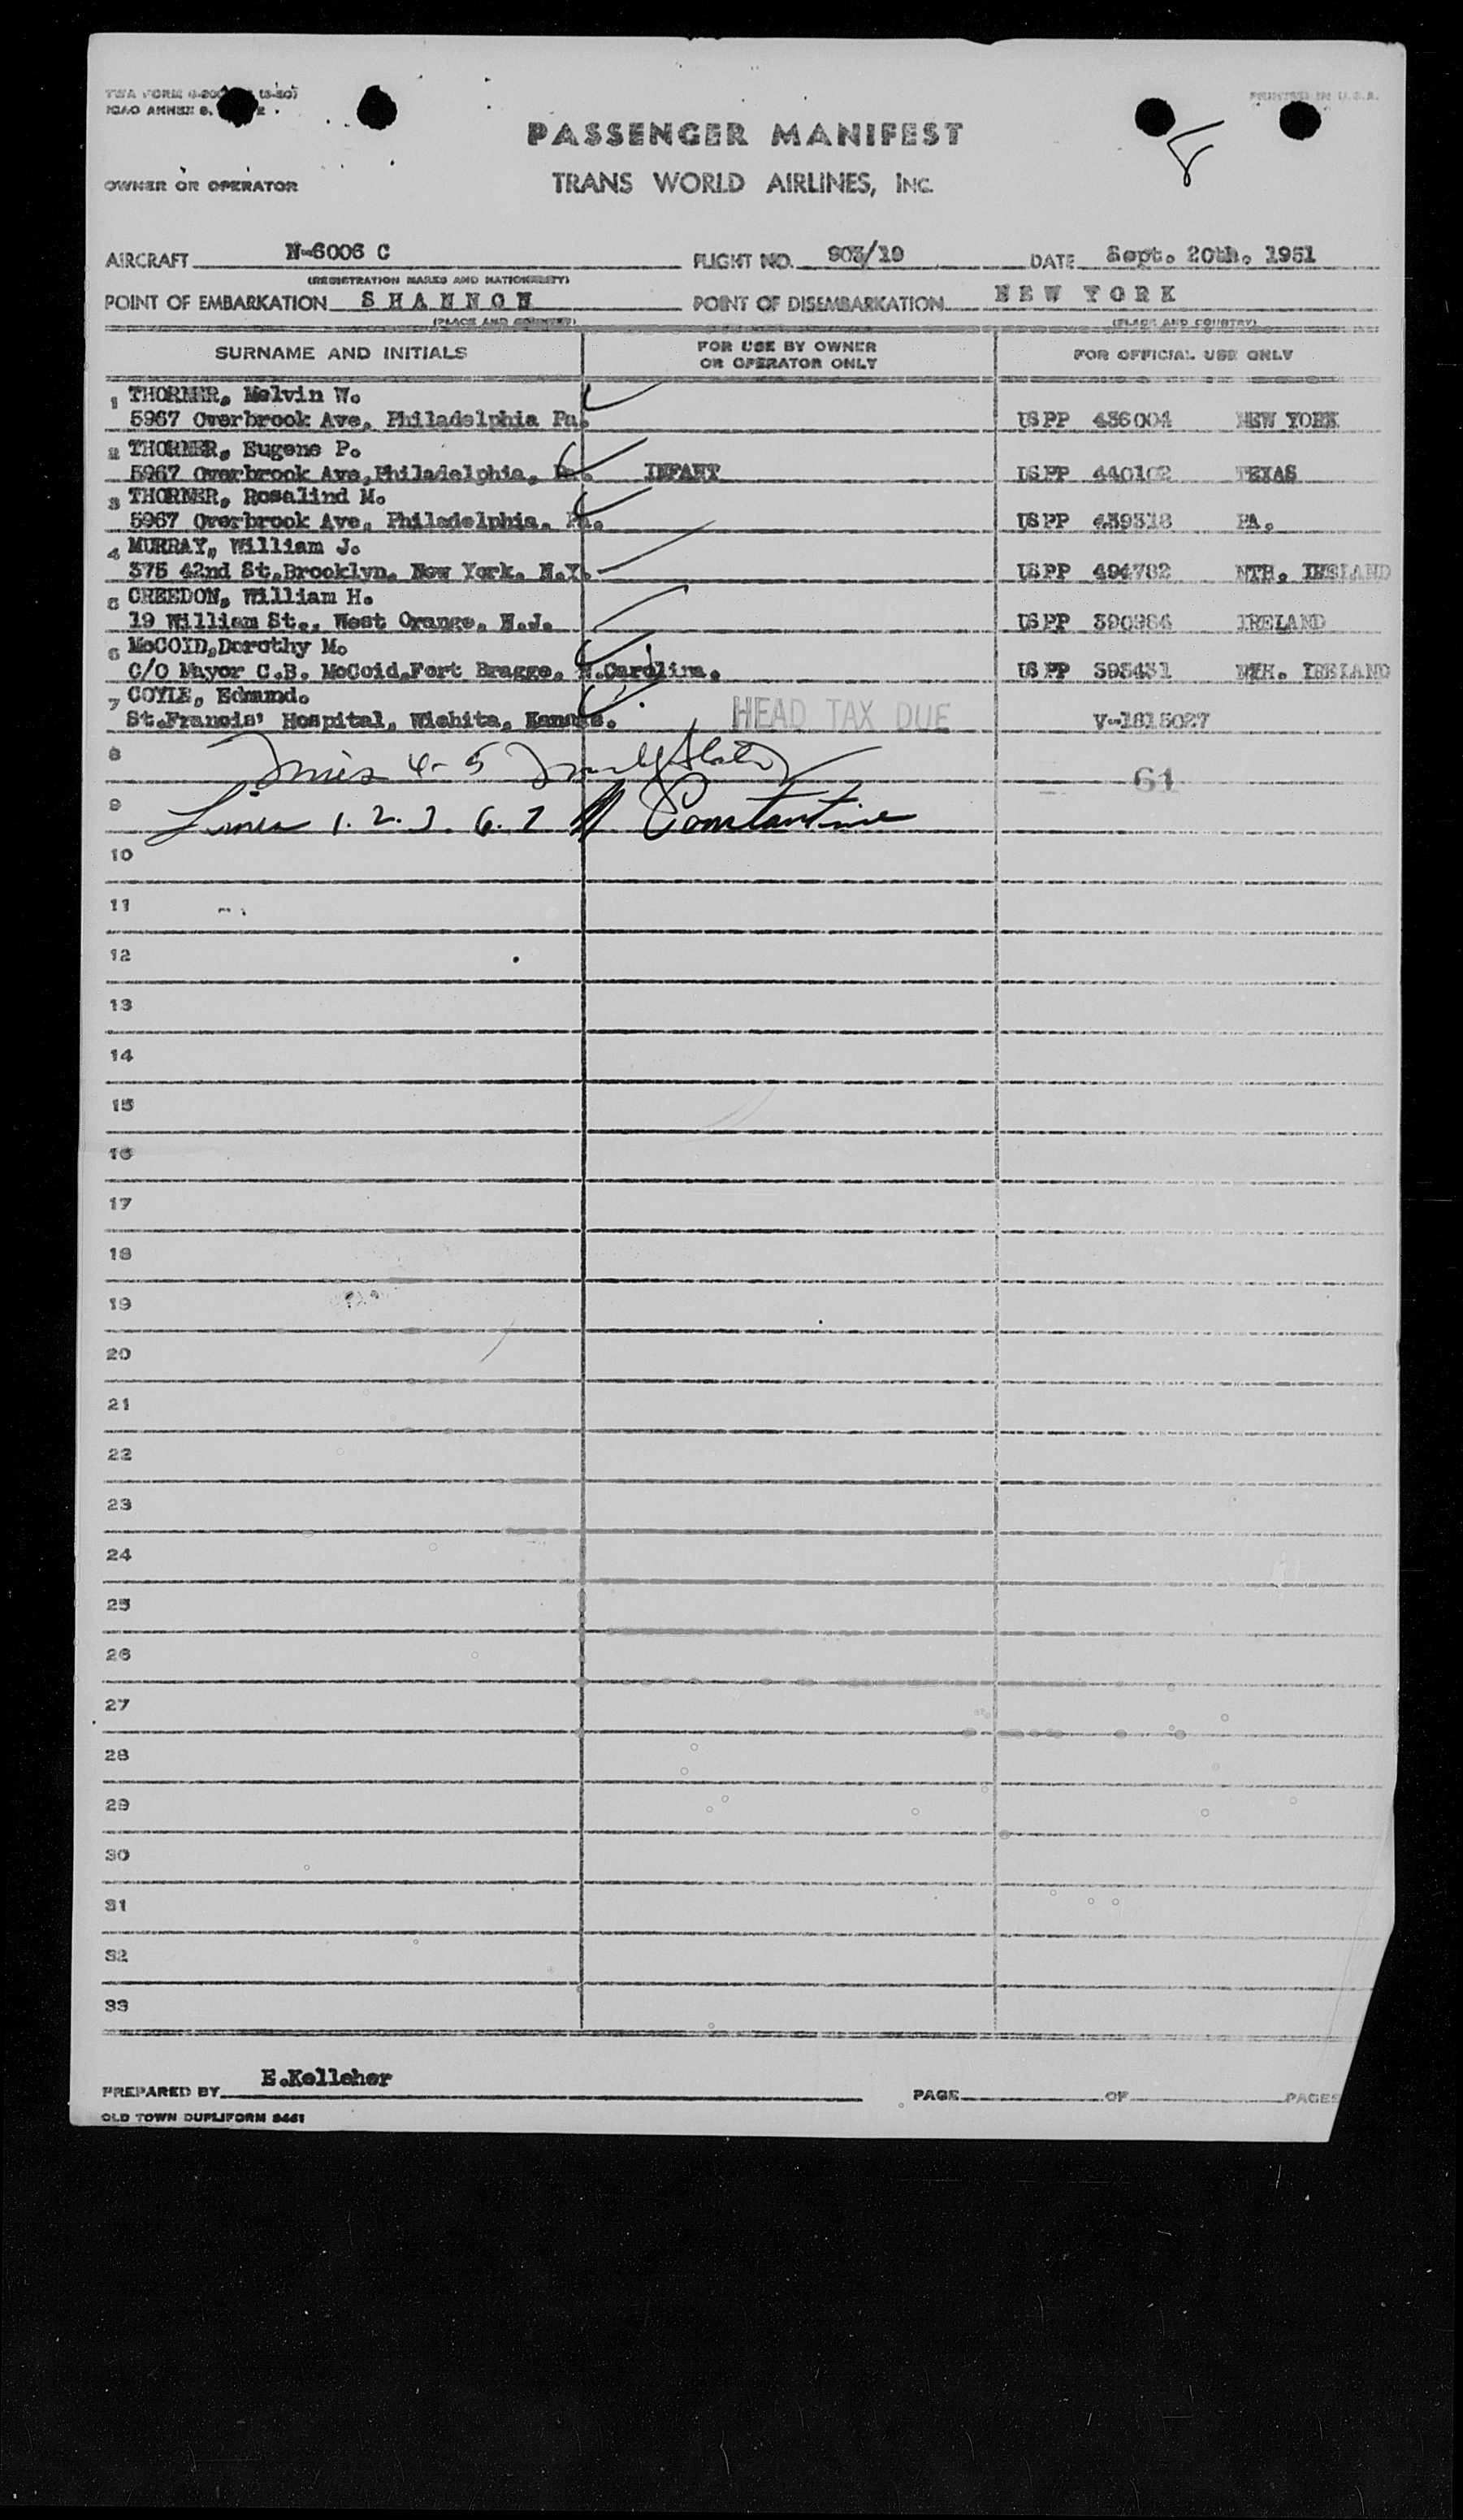 PRINTED IN U.S.A.
PASSENGER MANIFEST
OWNER OR OPERATOR TRANS WORLD AIRLINES, INC.
AIRCRAFT N-6006 C FLIGHT NO. 903/19 DATE Sept. 20th. 1951
(REGISTRATION MARKS AND NATIONALITY)
POINT OF EMBARKATION S H A N N O N POINT OF DISEMBARKATION N E W Y O R K
(PLACE AND COUNTRY) (PLACE AND COUNTRY)
SURNAME AND INITIALS FOR USE BY OWNER OR OPERATOR ONLY FOR OFFICIAL USE ONLY
1 THORNER, Melvin W.
5967 Overbrook Ave, Philadelphia Pa. US PP 436004 NEW YORK
2 THORNER, Eugene P.
5967 Overbrook Ave,Philadelphia, Pa. INFANT US PP 440102 TEXAS
3 THORNER, Rosalind M.
5967 Overbrook Ave, Philadelphia. Pa. US PP 439318 PA.
4 MURRAY, William J.
375 42nd St.Brooklyn. New York. N.Y. US PP 494782 NTH. IRELAND
5 CREEDON, William H.
19 William St., West Orange. N.J. US PP 390984 IRELAND
6 McCOID,Dorothy M.
C/O Mayor C.B. McCoid.Fort Bragge. N.Carolina. US PP 393431 NTH. IRELAND
7 COYLE, Edmund.
St.Francis' Hospital, Wichita, Kansas. HEAD TAX DUE V-1815027
8 Lines 4-5 61
9 Lines 1. 2. 3. 6. 7 Constantine
10
11
12
13
14
15
16
17
18
19
20
21
22
23
24
25
26
27
28
29
30
31
32
33
PREPARED BY E.Kelleher PAGE OF PAGES
OLD TOWN DUPLIFORM 8461